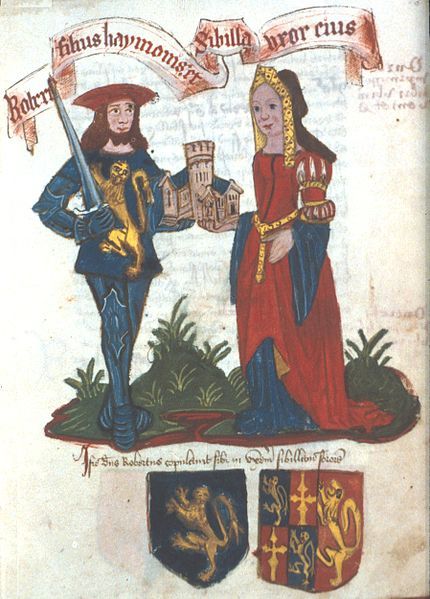 Robert filius haymonis et Sibilla uxor eius
Iste dns Robertus copulavit sibi in sibillam sororem